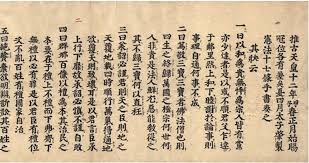 推古天皇十二年春正月始賜
冠位各有差夏四月太子肇製
憲法十七條手書奏之
其狀云
一曰以和爲貴無忤爲宗人皆有黨
亦少達者是以或不順君父乍違
于鄰里然上和下睦諧於論事則
事理自通何事不成
二曰篤敬三寶三寶者佛法僧也則
四生之終歸萬國之極宗何世何
人非貴是法人鮮尤惡能敎從之
其不歸三寶何以直枉
三曰承詔必謹君則天之臣則地之
天覆地載四時順行萬氣得通地
欲覆天則致壞耳是以君言臣承
上行下靡故承詔必謹不謹自敗
四曰群卿百僚以禮爲本其治民之
本要在乎禮上不禮而下非齊下
無禮以必有罪是以君臣有禮位
次不亂百姓有禮國家自治
五曰絶饗棄欲明辨訴訟其百姓